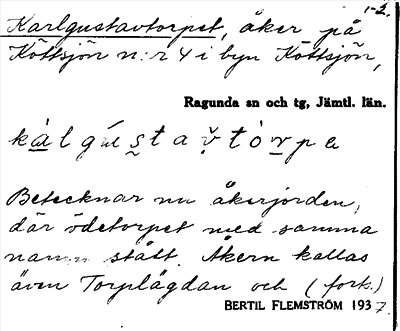 1-2.
Karlgustavtorpet, åker på
Köttsjön n:r 4 i byn Köttsjön,
Ragunda sn och tg, Jämtl. län.
Betecknar nu åkerjorden,
där ödetorpet med samma
namn stått. Åkern kallas
även Torplägdan och (fork.)
BERTIL FLEMSTRÖM 1937.